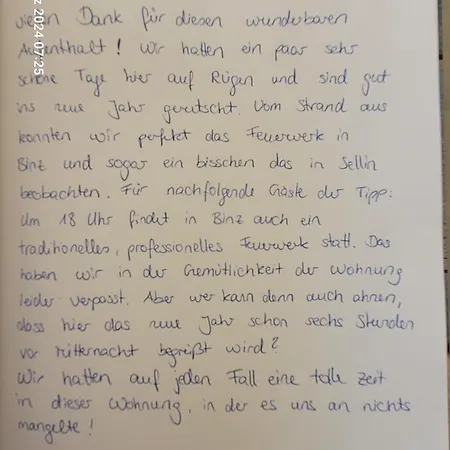 vielen Dank für diesen wunderbaren
Aufenthalt! Wir hatten ein paar sehr
schöne Tage hier auf Rügen und sind gut
ins neue Jahr gerutscht. Vom Strand aus
konnten wir perfekt das Feuerwerk in
Binz und sogar ein bisschen das in Sellin
beobachten. Für nachfolgende Gäste der Tipp:
Um 18 Uhr findet in Binz auch ein
traditionelles, professionelles Feuerwerk statt. Das
haben wir in der Gemütlichkeit der Wohnung
leider verpasst. Aber wer kann denn auch ahnen,
dass hier das neue Jahr schon sechs Stunden
vor Mitternacht begrüßt wird?
Wir hatten auf jeden Fall eine tolle Zeit
in dieser Wohnung, in der es uns an nichts
mangelte!
2024 07:25